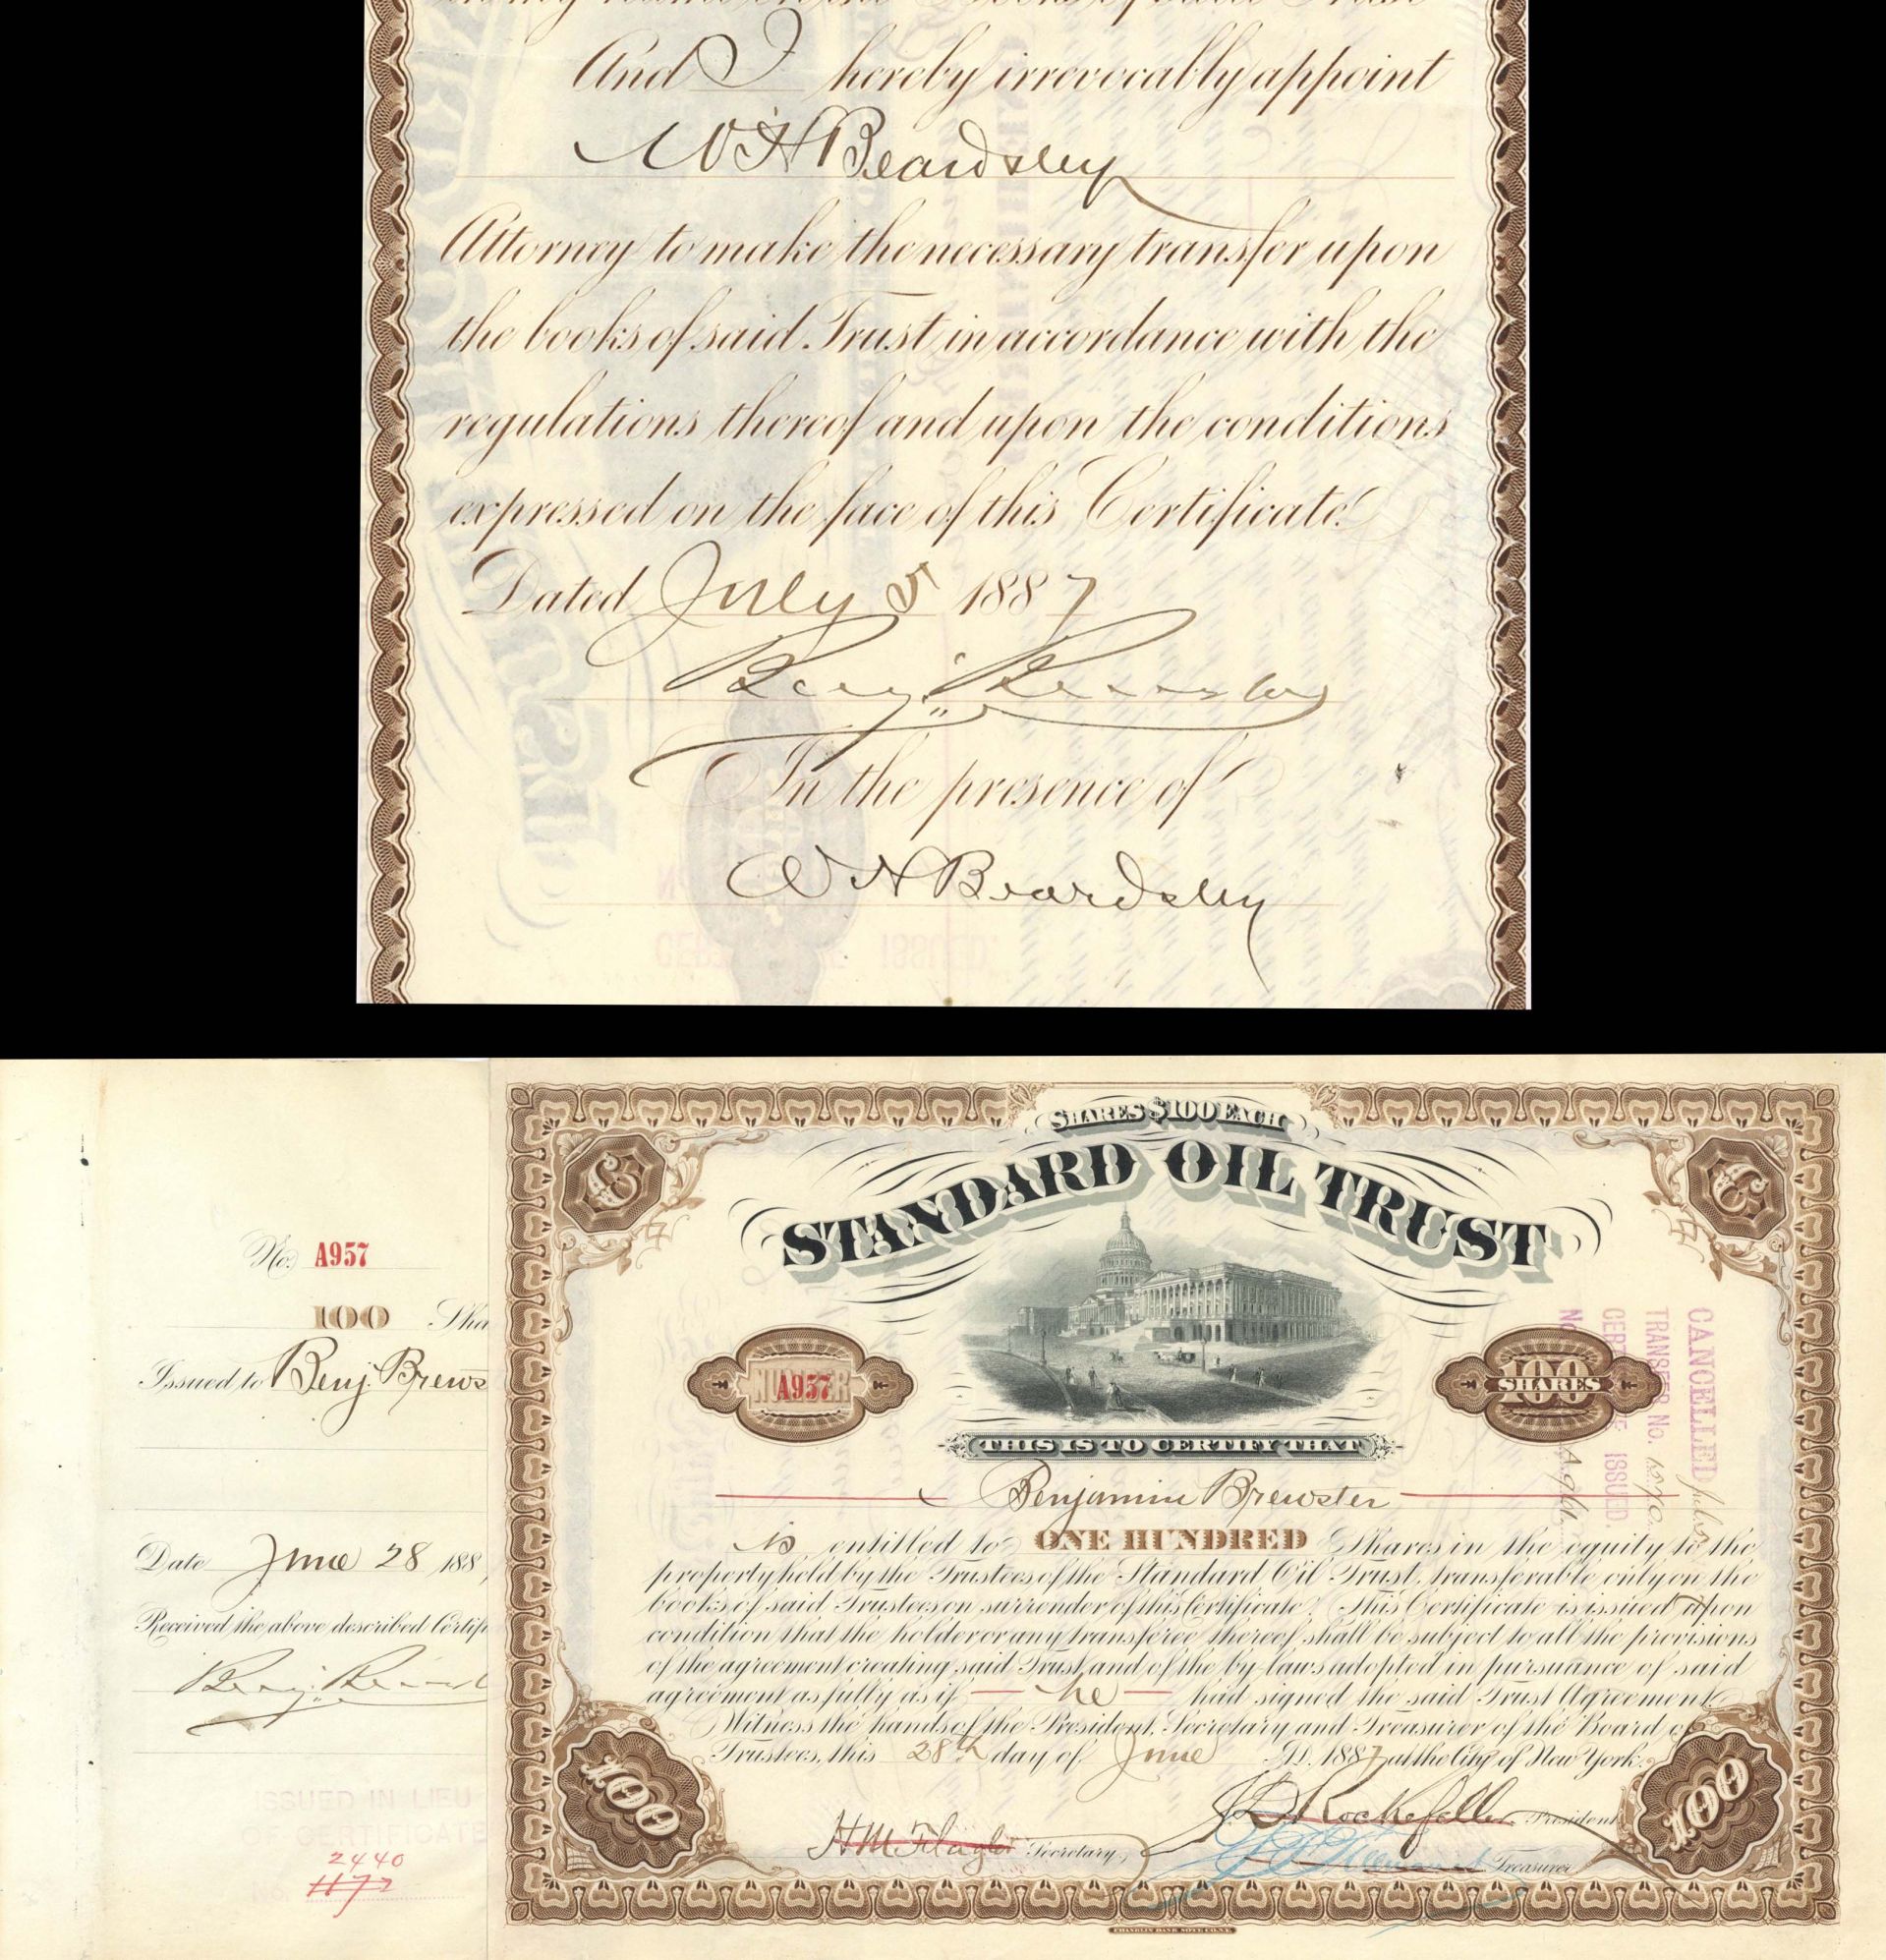 And I hereby irrevocably appoint
W H Beardsley
Attorney to make the necessary transfer upon
the books of said Trust in accordance with the
regulations thereof and upon the conditions
expressed on the face of this Certificate.
Dated July 5 1887
Benj. Brewster
In the presence of
W H Beardsley
No. A957
100 Sha
Issued to Benj. Brews
Date June 28 188
Received the above described Certif
Benj. Brewst
ISSUED IN LIEU
CERTIFICATE
2440
No. 1172
SHARES $100 EACH
STANDARD OIL TRUST
NUMBER
A957
100
SHARES
CANCELLED July 5
TRANSFER No. 1270
CERTIFICATE ISSUED.
No.
THIS IS TO CERTIFY THAT
Benjamin Brewster
is entitled to ONE HUNDRED Shares in the equity to the
property held by the Trustees of the Standard Oil Trust, transferable only on the
books of said Trustees on surrender of this Certificate. This Certificate is issued upon
condition that the holder or any transferee thereof shall be subject to all the provisions
of the agreement creating said Trust and of the by-laws adopted in pursuance of said
agreement as fully as if he had signed the said Trust Agreement.
Witness the hands of the President, Secretary and Treasurer of the Board of
Trustees, this 28th day of June A.D. 1887 at the City of New York.
J D Rockefeller President
H M Flagler Secretary
Treasurer
100
100
FRANKLIN BANK NOTE CO. N.Y.